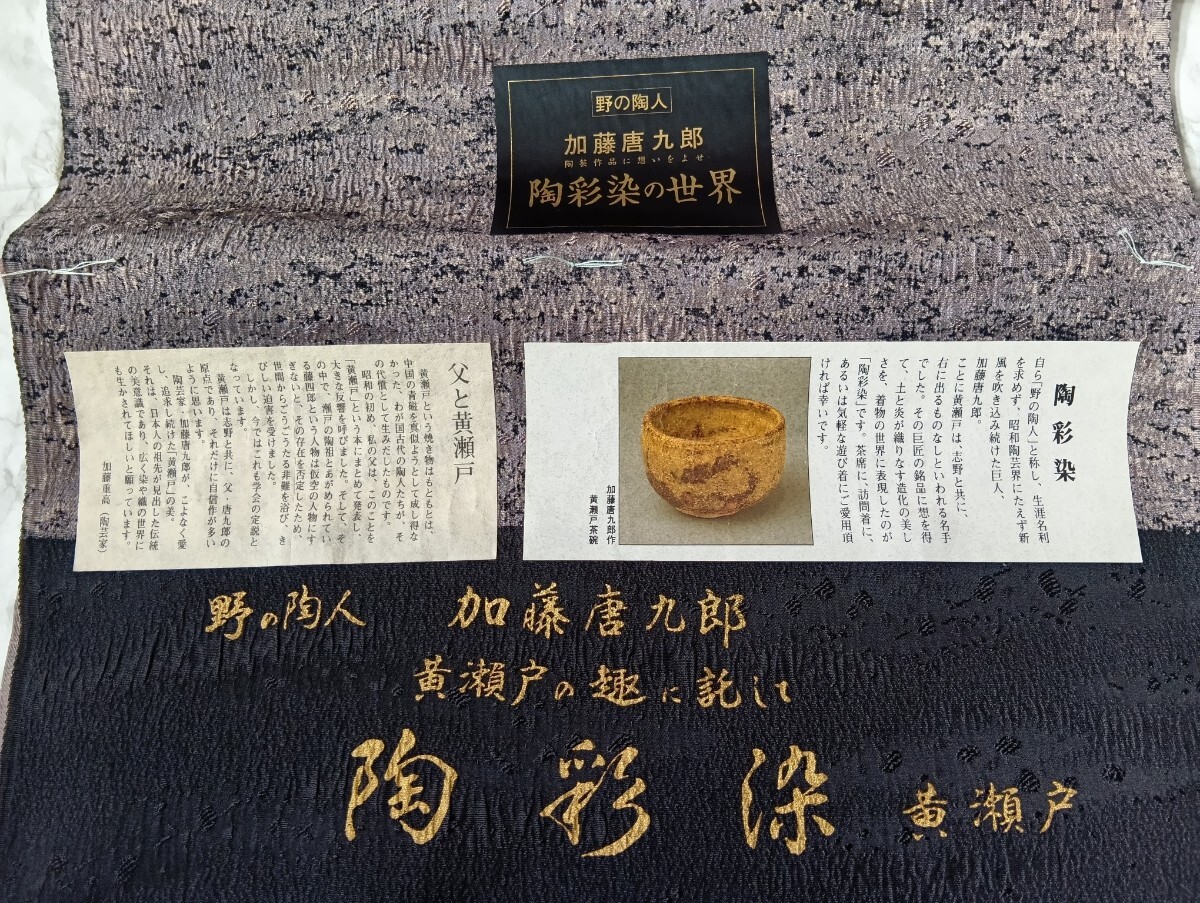 野の陶人
加藤唐九郎
陶製作品に想いをよせ
陶彩染の世界
陶彩染
自ら「野の陶人」と称し、生涯名利
を求めず、昭和陶芸界にたえず新
風を吹き込み続けた巨人、
加藤唐九郎。
ことに黄瀬戸は、志野と共に、
右に出るものなしといわれる名手
でした。その巨匠の銘品に想を得
て、土と炎が織りなす造化の美し
さを、着物の世界に表現したのが
「陶彩染」です。茶席に、訪問着に、
あるいは気軽な遊び着にご愛用頂
ければ幸いです。
加藤唐九郎作
黄瀬戸茶碗
父と黄瀬戸
黄瀬戸という焼き物はもともとは、
中国の青磁を真似ようとして成し得な
かった、わが国古代の陶人たちが、そ
の代償として生みだしたものです。
昭和の初め、私の父は、このことを
「黄瀬戸」という本にまとめて発表し、
大きな反響を呼びました。そして、そ
の中で、瀬戸の陶祖とあがめられてい
る藤四郎という人物は仮空の人物にす
ぎないと、その存在を否定したため、
世間からごうごうたる非難を浴び、き
びしい迫害を受けました。
しかし、今ではこれも学会の定説と
なっています。
黄瀬戸は志野と共に、父・唐九郎の
原点であり、それだけに自信作が多い
ように思います。
陶芸家・加藤唐九郎が、こよなく愛
し、追求し続けた「黄瀬戸」の美。
それは、日本人の祖先が見出した伝統
の美意識であり、広く染や織の世界に
も生かされてほしいと願っています。
加藤重高（陶芸家）
野の陶人 加藤唐九郎
黄瀬戸の趣に託して
陶彩染 黄瀬戸